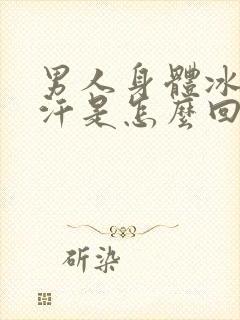 男人身體冰
汗是怎麼回
斫染